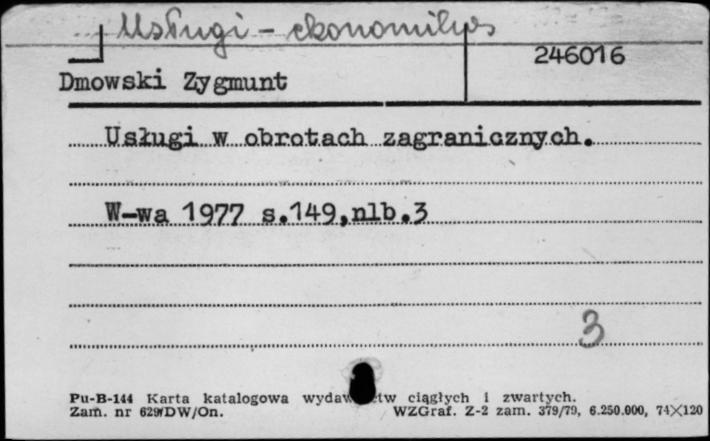 Usługi - ekonomika
246016
Dmowski Zygmunt
Usługi w obrotach zagranicznych.
W-wa 1977 s.149,nlb.3
3
Pu-B-144 Karta katalogowa ciągłych i zwartych.
Zam. nr 629/DW/On. WZGraf. Z-2 zam. 379/79, 6.250.000, 74×120